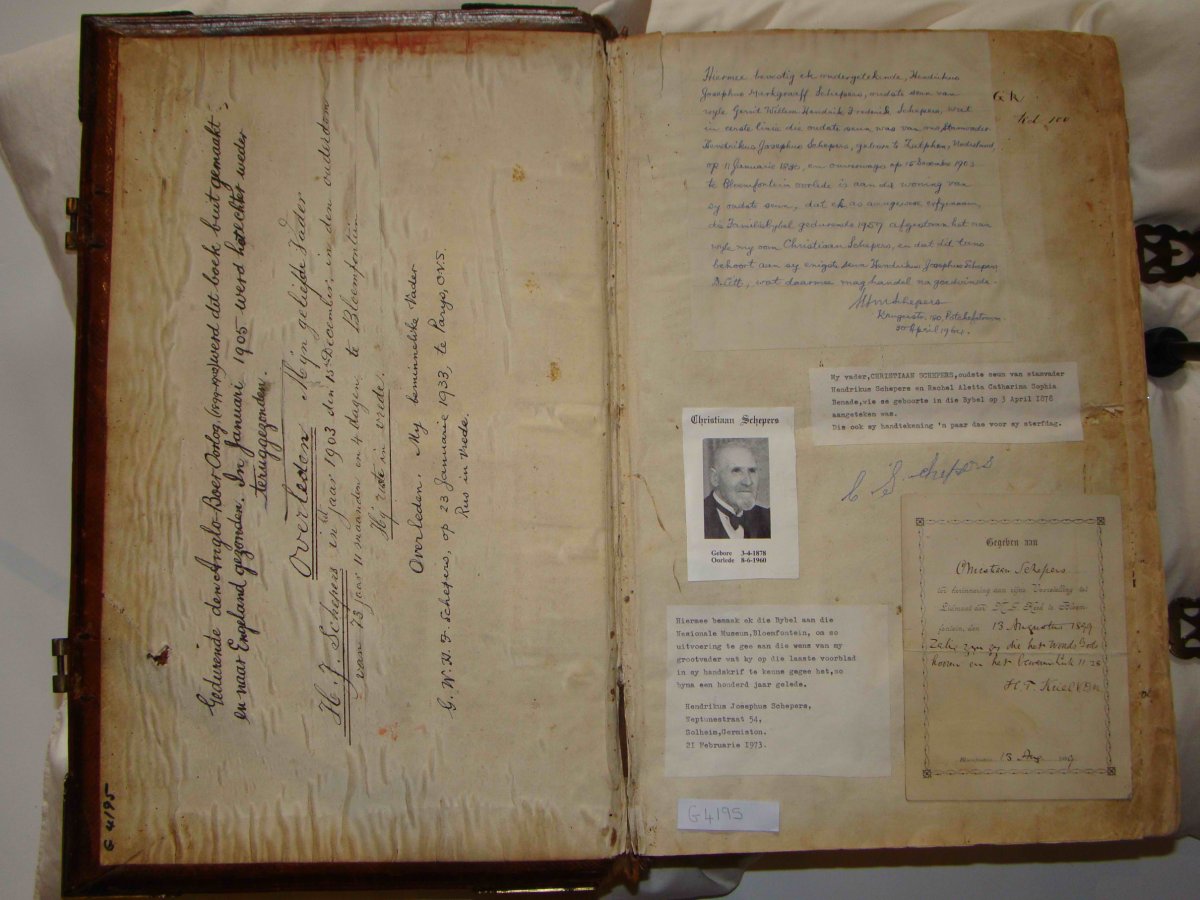 Gedurende den Anglo-Boer Oorlog (1899-1902) werd dit boek buit gemaakt
en naar Engeland gezonden. In Januari 1905 werd het echter weder
teruggezonden.
Overleden Mijn geliefde Vader
H. J. Schepers in 't jaar 1903 den 15de December in den ouderdom
van 73 jaar 11 maanden en 4 dagen te Bloemfontein
Hij ruste in vrede.
Overleden. My beminnelike Vader
G. W. H. F. Schepers, op 23 Januarie 1933, te Parys, O.V.S.
Rus in Vrede.
G 4195
Hiermee bevestig ek ondergetekende, Hendrikus
Josephus Markgraaff Schepers, oudste seun van
wyle Gerrit Willem Hendrik Frederik Schepers, wat
in eerste linie die oudste seun was van ons Stamvader
Hendrikus Josephus Schepers, gebore te Zutphen, Nederland,
op 11 Januarie 1830, en oorlede op 15 Desember 1903
te Bloemfontein oorlede is aan die woning van
sy oudste seun, dat ek as aangewese erfgenaam
die Familiebybel gedurende 1957 afgestaan het aan
wyle my oom Christiaan Schepers, en dat dit
behoort aan sy enigste seun Hendrikus Josephus Schepers
wat daarmee mag handel na goedvinde.
HJM Schepers
Krugerstr. 130, Potchefstroom.
30 April 1964.
My vader,CHRISTIAAN SCHEPERS,oudste seun van stamvader
Hendrikus Schepers en Rachel Aletta Catharina Sophia
Benade,wie se geboorte in die Bybel op 3 April 1878
aangeteken was.
Die ook sy handtekening 'n paar dae voor sy sterfdag.
C S Schepers
Christiaan Schepers
Gebore 3-4-1878
Oorlede 8-6-1960
Hiermee bemaak ek die Bybel aan die
Nasionale Museum,Bloemfontein, om so
uitvoering te gee aan die wens van my
grootvader wat hy op die laaste voorblad
in sy handskrif te kenne gegee het,so
byna een honderd jaar gelede.
Hendrikus Josephus Schepers,
Neptunestraat 54,
Solheim,Germiston.
21 Februarie 1973.
G4195
Gegeben aan
Christiaan Schepers
ter herinnering aan zijne Voorstelling tot
Lidmaat der N. G. Kerk te Bloem-
fontein, den 13 Augustus 1899
Zalig zyn zy die het Woord Gods
hooren en het bewaren Luk 11:28
13 Aug